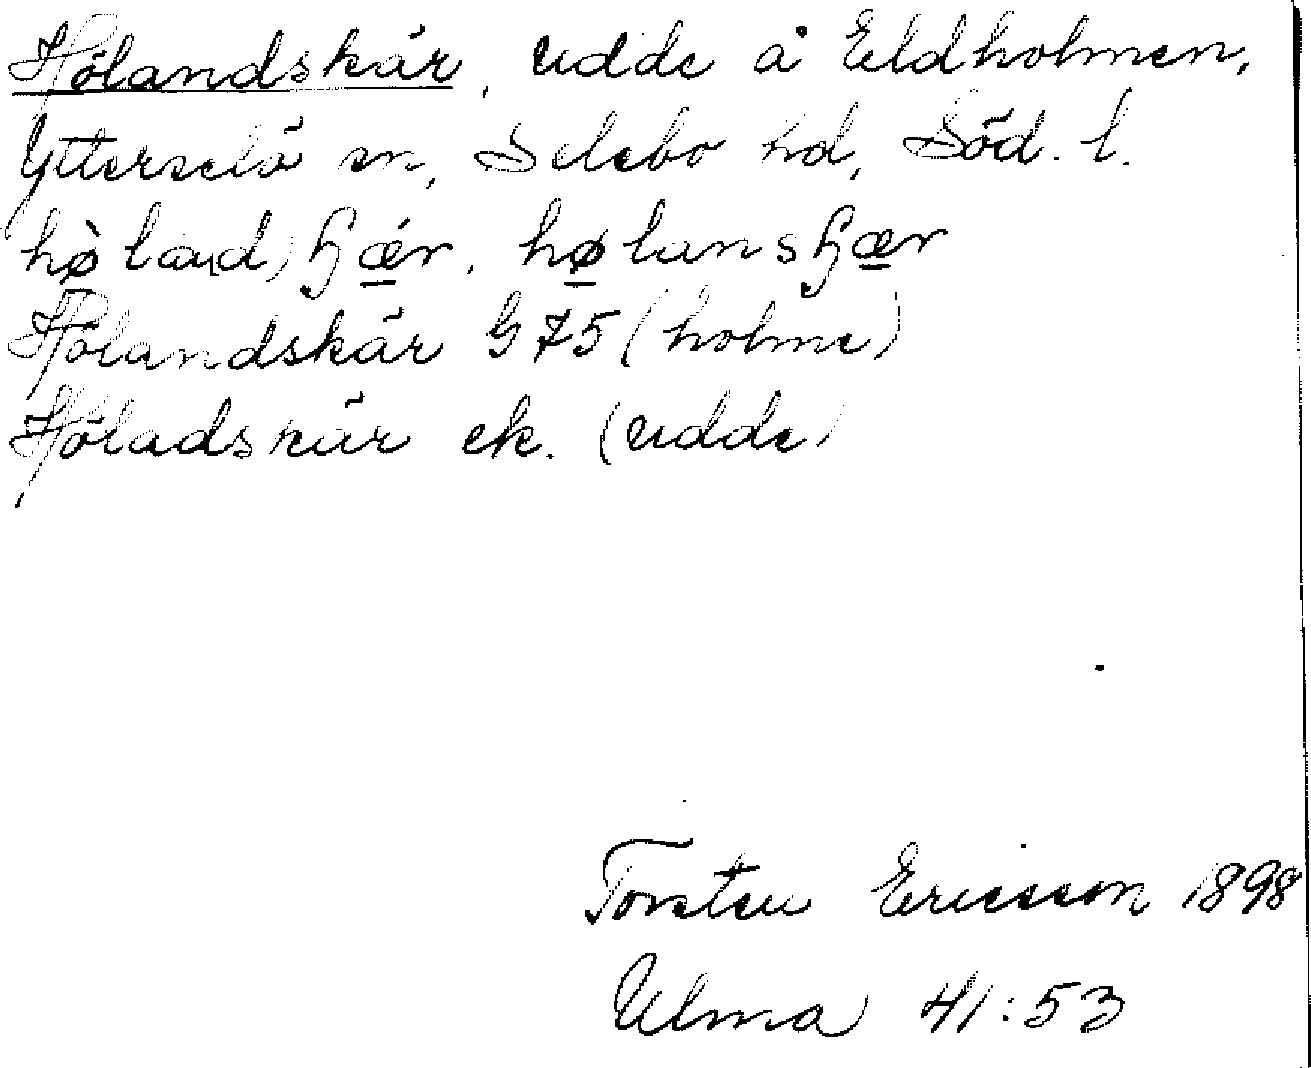 Hölandskär, udde å Eldholmen,
Ytterselö sn, Selebo hd, Söd. l.
Hölandskär G 75 (holme)
Höladskär ek. (udde)
Torsten Ericsson 1898
Ulma 41:53